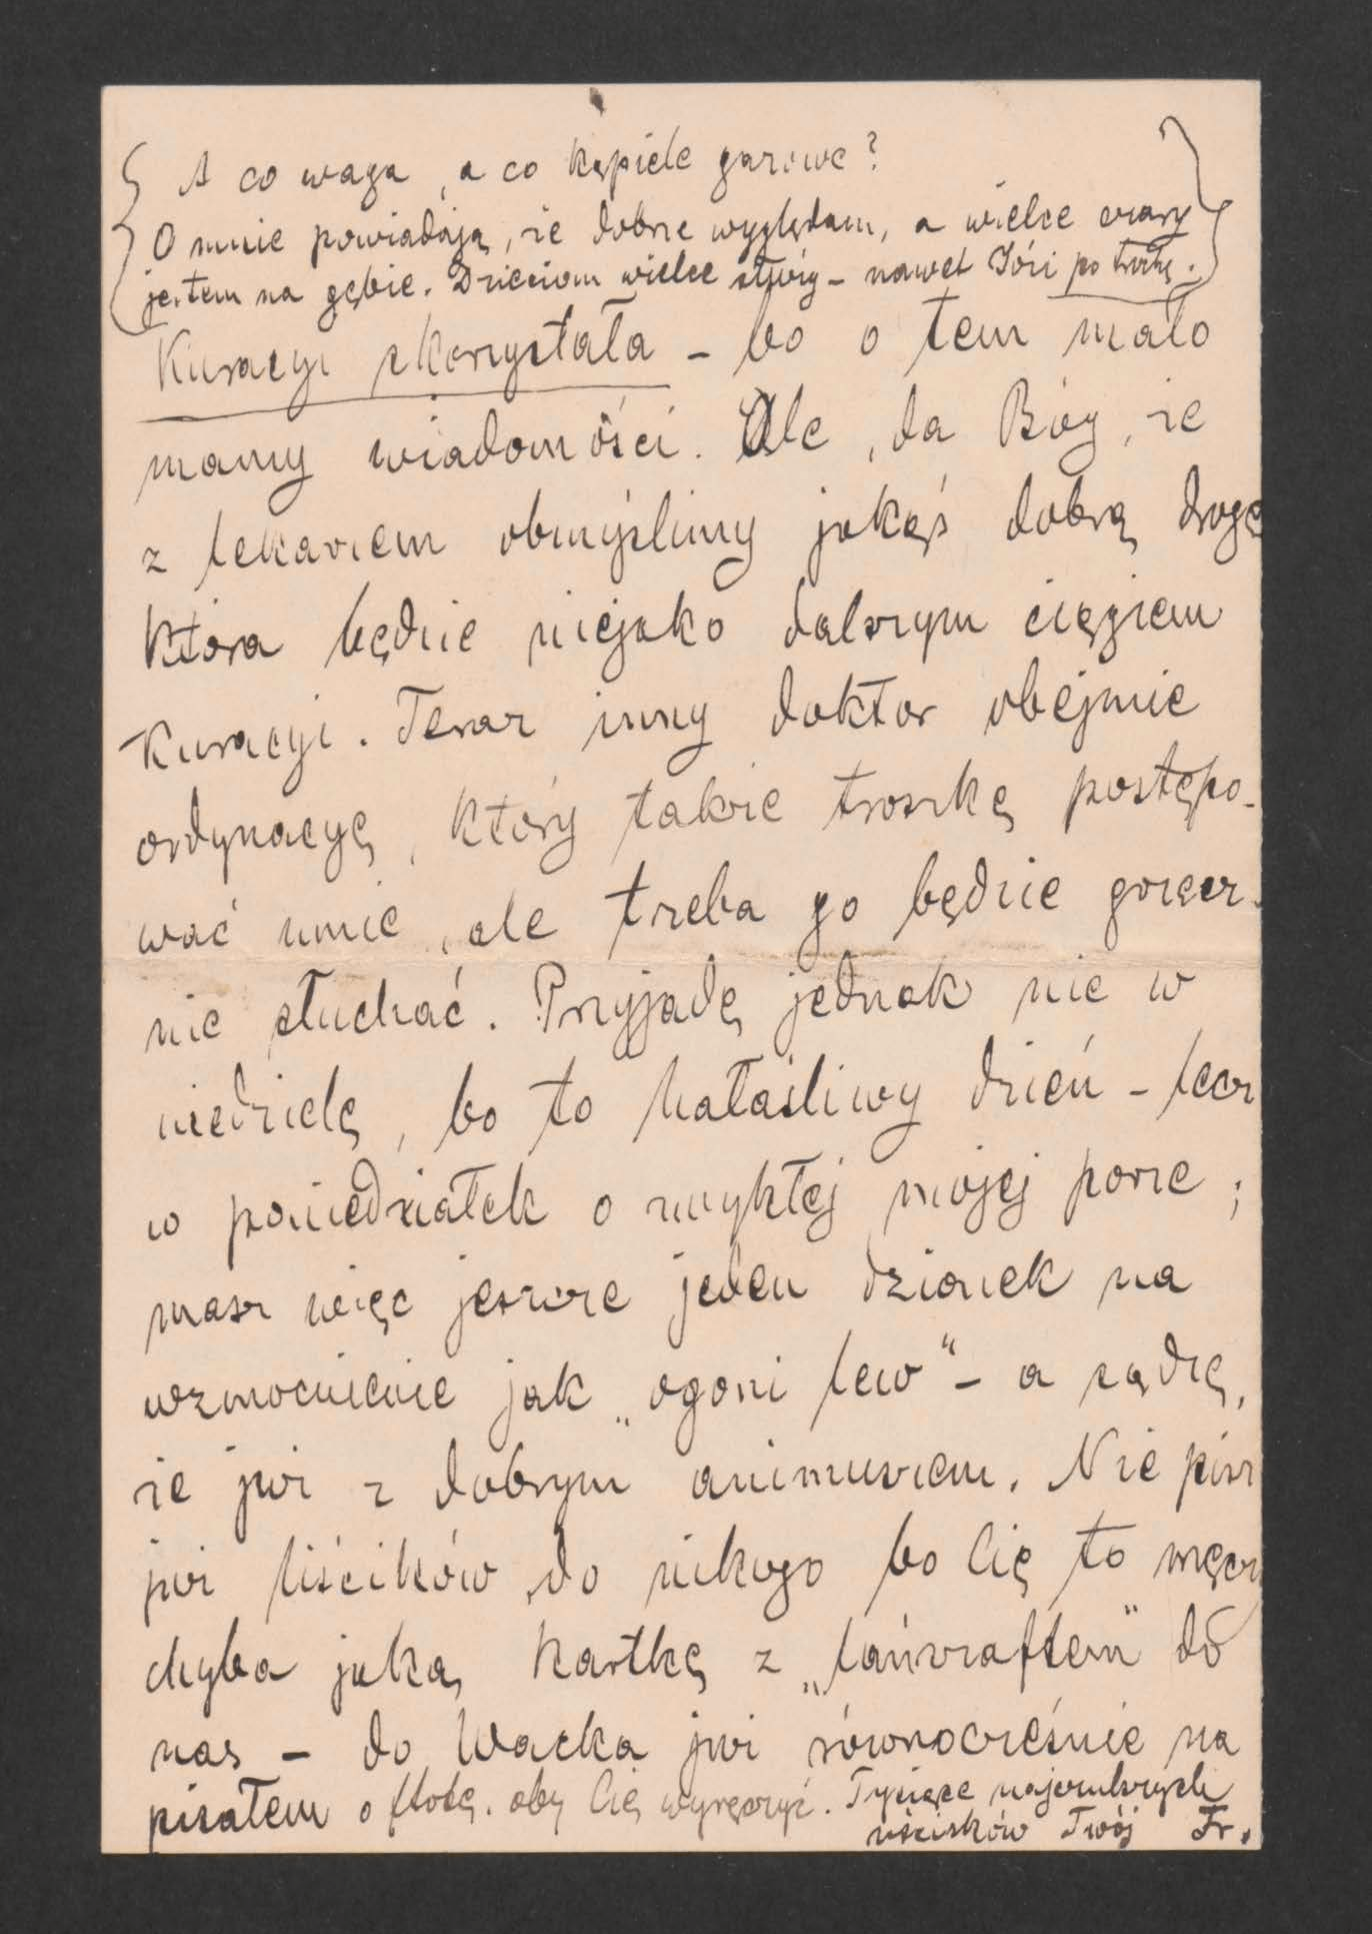 A co waga, a co kąpiele gazowe?
O mnie powiadają, że dobrze wyglądam, a wielce czarny
jestem na gębie. Dzieciom wielce służy – nawet Józi po trochę.
Kuracyi skorzystała – bo o tem mało
mamy wiadomości. Ale, da Bóg, że
z lekarzem obmyślimy jakąś dobrą drogę
która będzie niejako dalszym ciągiem
kuracyi. Teraz inny doktor obejmie
ordynacyę, który także troszkę postępo-
wać umie, ale trzeba go będzie grzecz-
nie słuchać. Przyjadę jednak nie w
niedzielę, bo to hałaśliwy dzień – lecz
w poniedziałek o zwykłej mojej porze;
masz więc jeszcze jeden dzionek na
wzmocnienie jak „ogoni lew" – a sądzę,
że już z dobrym animuszem. Nie pisz
już liścików do nikogo bo Cię to męczy
chyba jaką kartkę z „lańszaftem" do
nas – do Wacka już równocześnie na
pisałem o flotę, aby Cię wyręczyć. Tysiące najczulszych
uścisków Twój Fr.